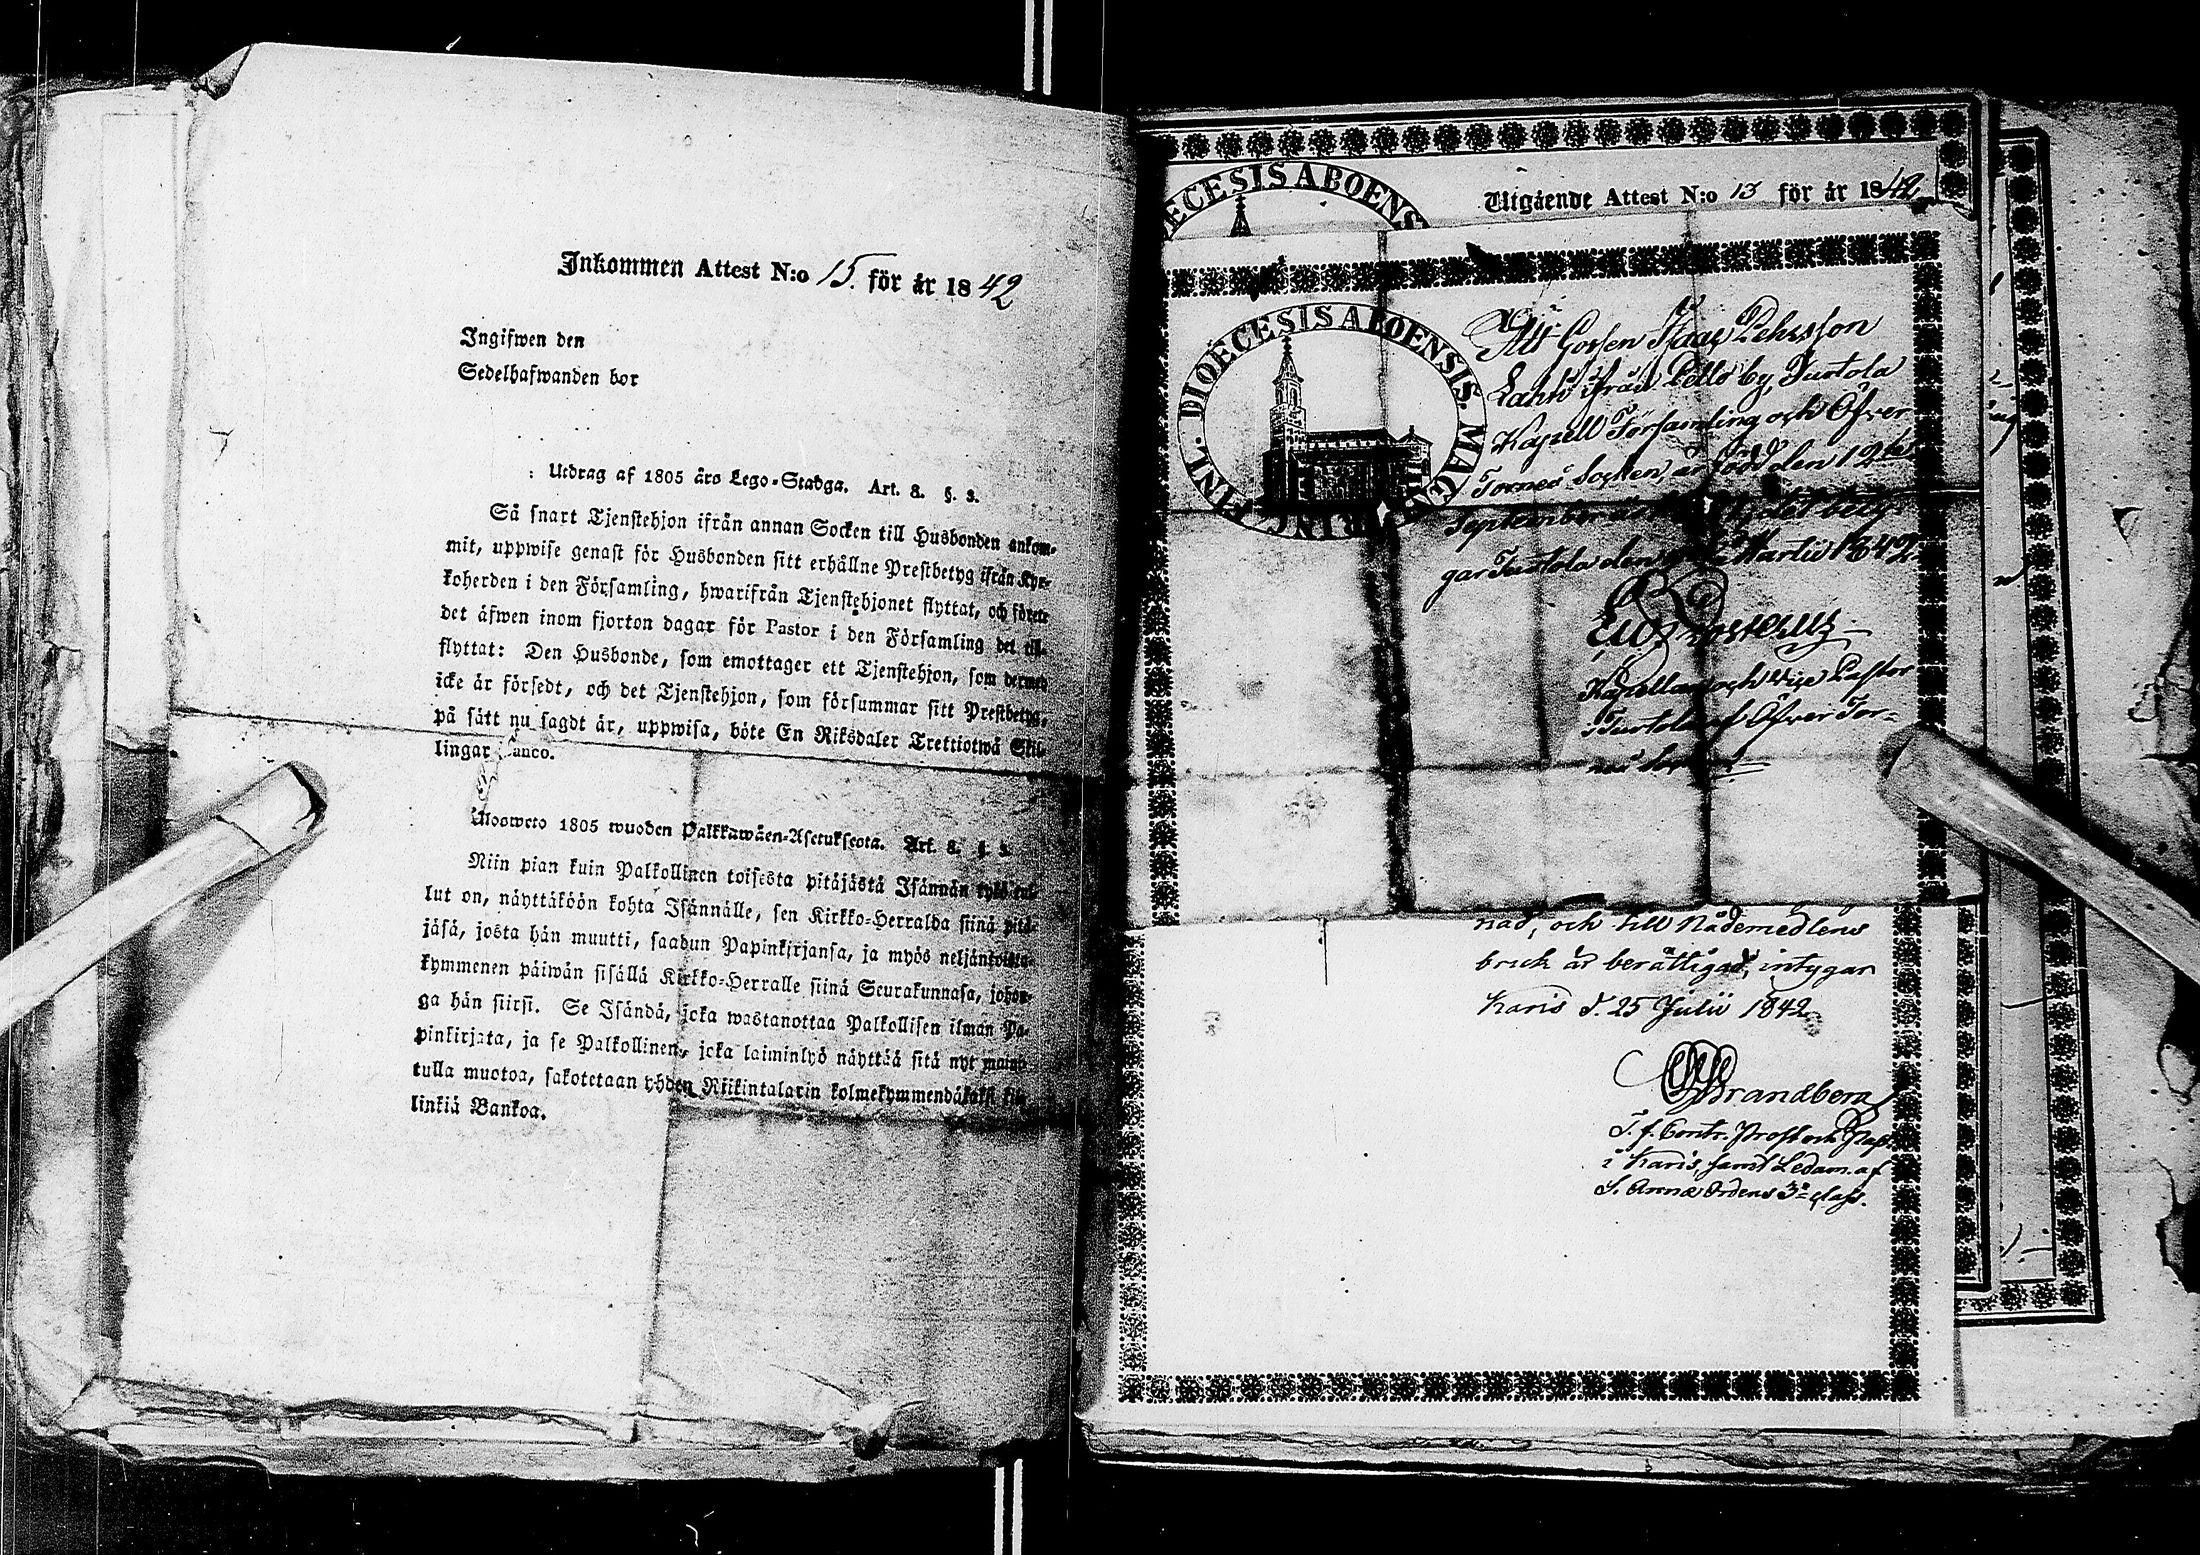 Inkommen Attest N:o 15. för år 1842
Ingifwen den
Sedelhafwanden bor
Utdrag af 1805 års Lego-Stadga. Art. 8. §. 3.
Så snart Tjenstehjon ifrån annan Socken till Husbonden ankom-
mit, uppwise genast för Husbonden sitt erhållne Prestbetyg ifrån Kyr-
koherden i den Församling, hwarifrån Tjenstehjonet flyttat, och förete
det äfwen inom fjorton dagar för Pastor i den Församling det till-
flyttat: Den Husbonde, som emottager ett Tjenstehjon, som dermed
icke är försedt, och det Tjenstehjon, som försummar sitt Prestbetyg,
på sätt nu sagdt är, uppwisa, böte En Riksdaler Trettiotwå Skil-
lingar Banco.
Ulosweto 1805 wuoden Palkkawäen-Asetuksesta. Art. 8. §.
Niin pian kuin Palkollinen toisesta pitäjästä Isännän tykö tul-
lut on, näyttäköön kohta Isännälle, sen Kirkko-Herralda siinä pitä-
jäsä, josta hän muutti, saadun Papinkirjansa, ja myös neljäntoista-
kymmenen päiwän sisällä Kirkko-Herralle siinä Seurakunnasa, johon-
ga hän siirsi. Se Isändä, joka wastanottaa Palkollisen ilman Pa-
pinkirjata, ja se Palkollinen, joka laiminlyö näyttää sitä nyt mainit-
tulla muotoa, sakotetaan yhden Riikintalarin kolmekymmendäkaksi kil-
linkiä Bankoa.
ECESIS ABOENS
Utgående Attest N:o 13 för år 1842
FINL. DIOECESIS ABOENSIS. MAGN PRINC.
Att Gossen Isac Pehrsson
Lahti ifrån Pello by, Turtola
Kapell Församling och Öfver
Torneå Socken, är född den 12te
September det bety-
gar Turtola den Martii 1842
Kapellan och Vice Pastor
i Turtola af Öfver Tor-
neå Socken
nad, och till Nådemedlens
bruk är berättigad, intygar
Karis d. 25 Julii 1842
Brandberg
T. f. Contr. Prost och Past.
i Karis, samt Ledam. af
S. Annæ Ordens 3e class.